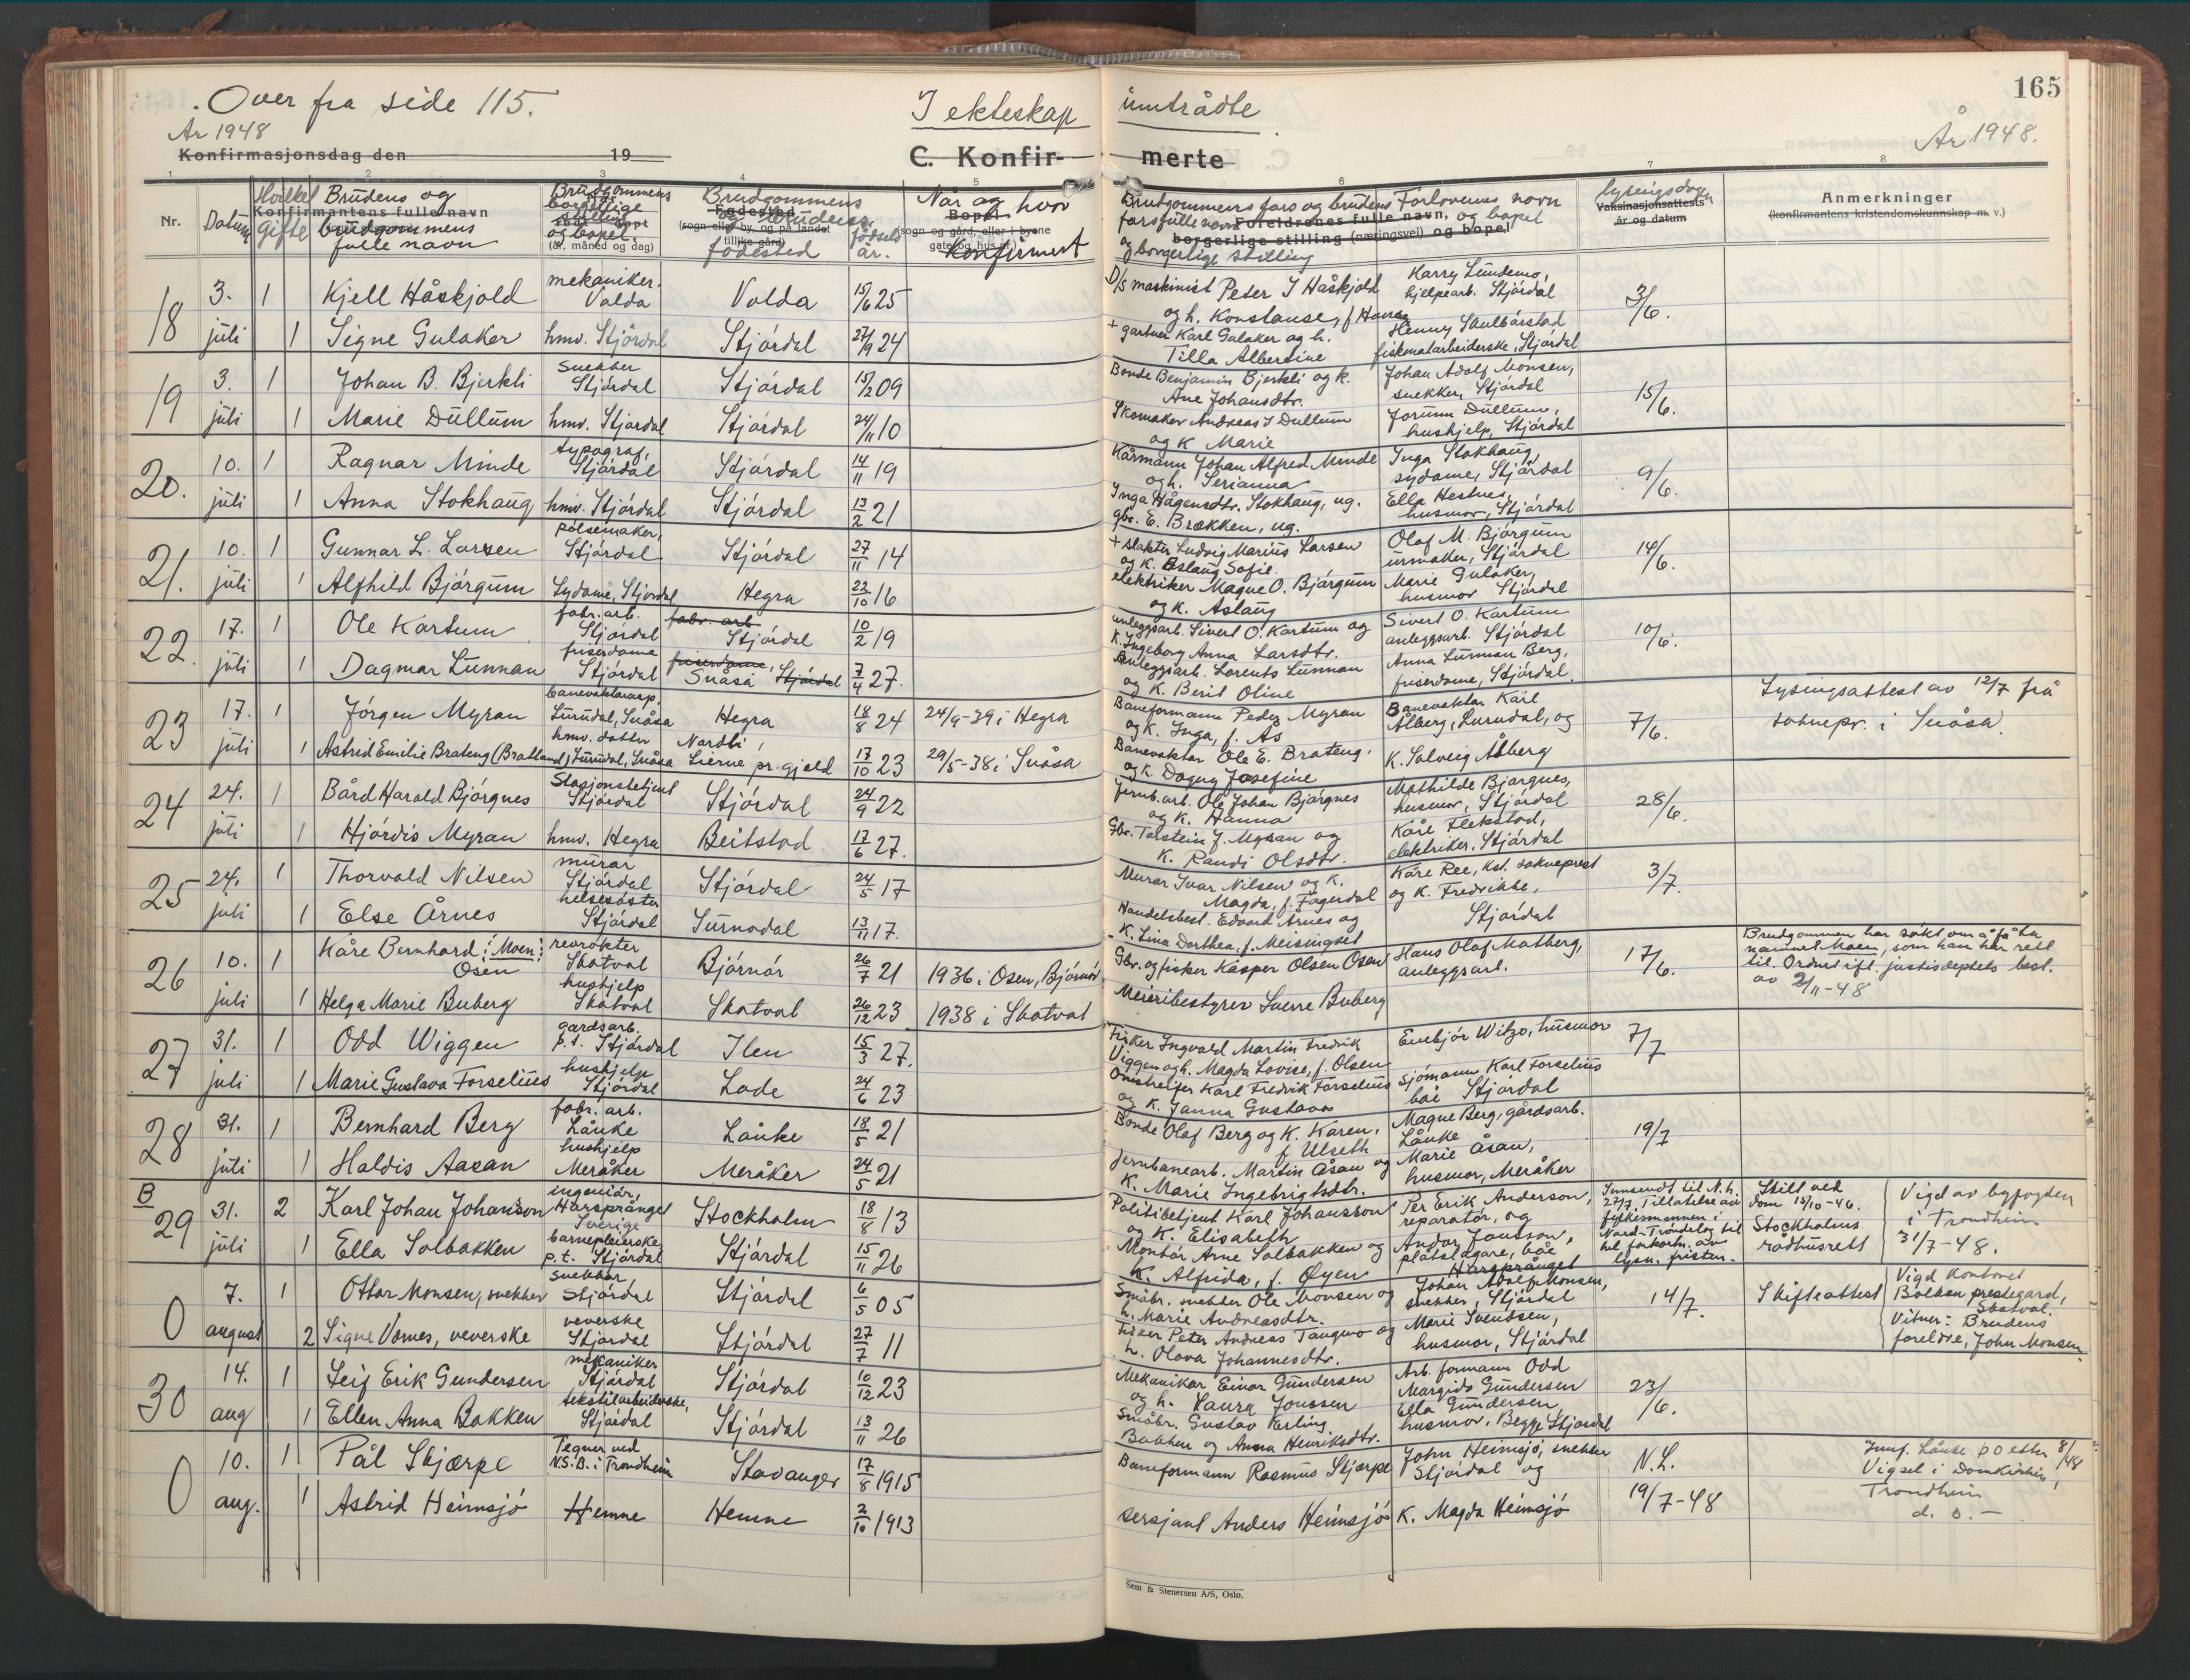 165
. Over fra side 115.
I ekteskap inntrådte
År 1948
År 1948.
Konfirmasjonsdag den 19
C. Konfir- merte
1 2 3 4 5 6 7 8
Nr.
Datum
Hvilket Gifte
Brudens og
Konfirmantens fulle navn
brudgommens
fulle navn
Brudgommens
borgerlige
stilling
og bopel.
(år, måned og dag)
Brudgommens
Fødested
og brudens
(sogn eller by, og på landet
tillike gård)
fødested
fødsels
år.
Når og hvor
Bopel
(sogn og gård, eller i byene
gate og hus nr.)
Konfirmert
Brudgommens fars og brudens
fars fulle navn
Foreldrenes fulle navn,
borgerlige stilling (næringsvei) og bopel
og borgerlige stilling
Forlovernes navn
og bopel
lysingsdagen
Vaksinasjonsattests
år og datum
Anmerkninger
(konfirmantens kristendomskunnskap m. v.)
18 3. juli 1 Kjell Håskjold mekaniker. Volda Volda 15/6 25 D/S maskinist Peter J Håskjold og h. Konstanse, f Hansen Harry Lundemo, hjelpearb. Stjørdal 3/6.
1 Signe Gulaker hmv. Stjørdal Stjørdal 27/9 24 + gartner Karl Gulaker og h. Tilla Albertine Henny Skulbørstad fiskematarbeiderske, Stjørdal
19 3. juli 1 Johan B. Bjerkli Snekker Stjørdal Stjørdal 15/2 09 Bonde Benjamin Bjerkli og k. Ane Johansdtr. Johan Adolf Monsen, snekker, Stjørdal 15/6.
1 Marie Dullum hmv. Stjørdal Stjørdal 24/11 10 Skomaker Andreas J Dullum og K Marie Jorunn Dullum, hushjelp, Stjørdal
20. 10. juli 1 Ragnar Minde typograf, Stjørdal Stjørdal 14/11 19 Kårmann Johan Alfred Minde og h. Serianna Inga Stokhaug, sydame, Stjørdal 9/6.
1 Anna Stokhaug hmv. Stjørdal Stjørdal 13/2 21 Inga Hågensdtr. Stokhaug, ug. gbr. E. Brækken, ug. Ella Hestnes, husmor, Stjørdal
21. 10. juli 1 Gunnar L. Larsen pølsemaker, Stjørdal Stjørdal 27/11 14 + slakter Ludvig Marius Larsen og K. Aslaug Sofie. Olaf M. Bjørgum urmaker, Stjørdal 14/6.
1 Alfhild Bjørgum Sydame, Stjørdal Hegra 22/10 16 elektriker Magne O. Bjørgum og K. Aslaug Marie Gulaker, husmor Stjørdal
22. 17. juli 1 Ole Kartum fabr. arb. Stjørdal fabr. arb Stjørdal 10/2 19 anleggsarb. Sivert O. Kartum og K. Ingeborg Anna Larsdtr. Sivert O. Kartum anleggsarb. Stjørdal 10/6.
1 Dagmar Lunnan friserdame Stjørdal friserdame, Snåsa Stjørdal 7/4 27. Anleggsarb. Lorents Lunnan og K. Berit Oline Anna Lunnan Berg, friserdame, Stjørdal.
23 17. juli 1 Jørgen Myran banevokterasp. Lurudal, Snåsa Hegra 18/8 24 24/9-39 i Hegra Baneformann Peder Myran og K. Inga, f. Ås Banevokter Karl Ålberg, Lurudal, og 7/6. Lysingsattest av 12/7 frå soknepr. i Snåsa.
1 Astrid Emilie Brateng (Bratland) hmv. datter Lurudal, Snåsa Nordli, Lierne pr.gjeld 17/10 23 29/5-38 i Snåsa Banevokter Ole E. Brateng. og K. Dagny Josefine K. Solveig Åberg
24 24. juli 1 Bård Harald Bjørgnes Stasjonsbetjent Stjørdal Stjørdal 24/9 22 Jernb.arb. Ole Johan Bjørgnes og K. Hanna Mathilde Bjørgnes, husmor, Stjørdal 28/6.
1 Hjørdis Myran hmv. Hegra Beitstad 17/6 27. Gbr. Torstein J. Myran og K. Randi Olsdtr. Kåre Flekstad, elektriker, Stjørdal
25 24. juli 1 Thorvald Nilsen murar Stjørdal Stjørdal 24/5 17 Murar Ivar Nilsen og K. Magda, f. Fagerdal Kåre Ree, kst. sokneprest og K. Fredrikke, 3/7.
1 Else Årnes helsesøster Stjørdal Surnadal 13/11 17. Handelsbest. Edvard Årnes og K. Lina Dorthea, f. Meisingset Stjørdal
26 10. juli 1 Kåre Bernhard (Moen) Osen revrøkter Skatval Bjørnør 26/7 21 1936 i Osen, Bjørnør Gbr. og fisker Kasper Olsen Osen Hans Olaf Matberg, anleggsarb. 17/6. Brudgommen har søkt om å få ta namnet Moen, som han har rett til. Ordnet ifl. justisdeptets best. av 2/11-48
1 Helga Marie Buberg hushjelp Skatval Skatval 26/12 23 1938 i Skatval Meieribestyrer Sverre Buberg
27 31. juli 1 Odd Wiggen gardsarb. p.t. Stjørdal Ilen 15/3 27. Fisker Ingvald Martin Fredrik Viggen og h. Magda Lovise, f. Olsen Embjør Witzø, husmor 7/7
1 Marie Gustava Forselius hushjelp Stjørdal Lade 24/6 23 Omstreifer Karl Fredrik Forselius og K. Janna Gustava Sjømann Karl Forselius båe Stjørdal
28 31. juli 1 Bernhard Berg fabr. arb. Lånke Lånke 18/5 21 Bonde Olaf Berg og K. Karen, f Ulseth Magne Berg, gårdsarb. Lånke 19/7
1 Haldis Aasan hushjelp Meråker Meråker 24/5 21 Jernbanearb. Martin Åsan og K. Marie Ingebrigtsdtr. Marie Åsan, husmor, Meråker
B 29 31. juli 2 Karl Johan Johanson ingeniør, Harsprånget Sverige Stockholm 18/8 13 Politibetjent Karl Johansson og K. Elisabeth Per Erik Anderson, reparatør, og Innsendt til N.h. 27/7. Tillatelse av fylkesmannen i Nord-Trøndelag til forkortn. av lysn. fristen. Skilt ved dom 15/10-46. Stockholms rådhusrett Vigd av byfogden i Trondheim 31/7-48.
1 Ella Solbakken barnepleierske, p.t. Stjørdal Stjørdal 15/11 26 Montør Arne Solbakken og K. Alfrida, f. Øyen Andor Jonsson, plåtslagare, båe Harsprånget
0 7. august 1 Ottar Monsen, snekker snekker Stjørdal Stjørdal 6/5 05 Småbr. snekker Ole Monsen og h. Marie Andreasdtr. Johan Adolf Monsen, snekker, Stjørdal 14/7. Skifteattest Vigd kontoret Bolkan prestegard, Skatval. Vitner: Brudens foreldre, John Monsen.
2 Signe Vornes, veverske veverske Stjørdal Stjørdal 27/7 11 Fisker Peter Andreas Tangmo og h. Olava Johannesdtr. Marie Svendsen, husmor, Stjørdal
30 14. aug 1 Leif Erik Gundersen mekaniker Stjørdal Stjørdal 10/12 23 Mekaniker Einar Gundersen og h. Laura Jonssen Arb. formann Odd Margido Gundersen 23/6.
1 Ellen Anna Bakken tekstilarbeiderske, Stjørdal Stjørdal 13/11 26 Småbr. Gustav Erling Bakken og Anna Henriksdtr. Ella Gundersen, husmor. Begge Stjørdal
0 10. aug. 1 Pål Skjærpe Tegner ved N.S.B. i Trondheim Stavanger 17/8 1915 Baneformann Rasmus Skjærpe John Heimsjø, snekker Stjørdal og N.L. 19/7-48 Lånke 8/48 Vigsel i Domkirken, Trondheim d. o.-
1 Astrid Heimsjø Hemne Hemne 2/10 1913 sersjant Anders Heimsjø K. Magda Heimsjø
Sem & Stenersen A/S, Oslo.